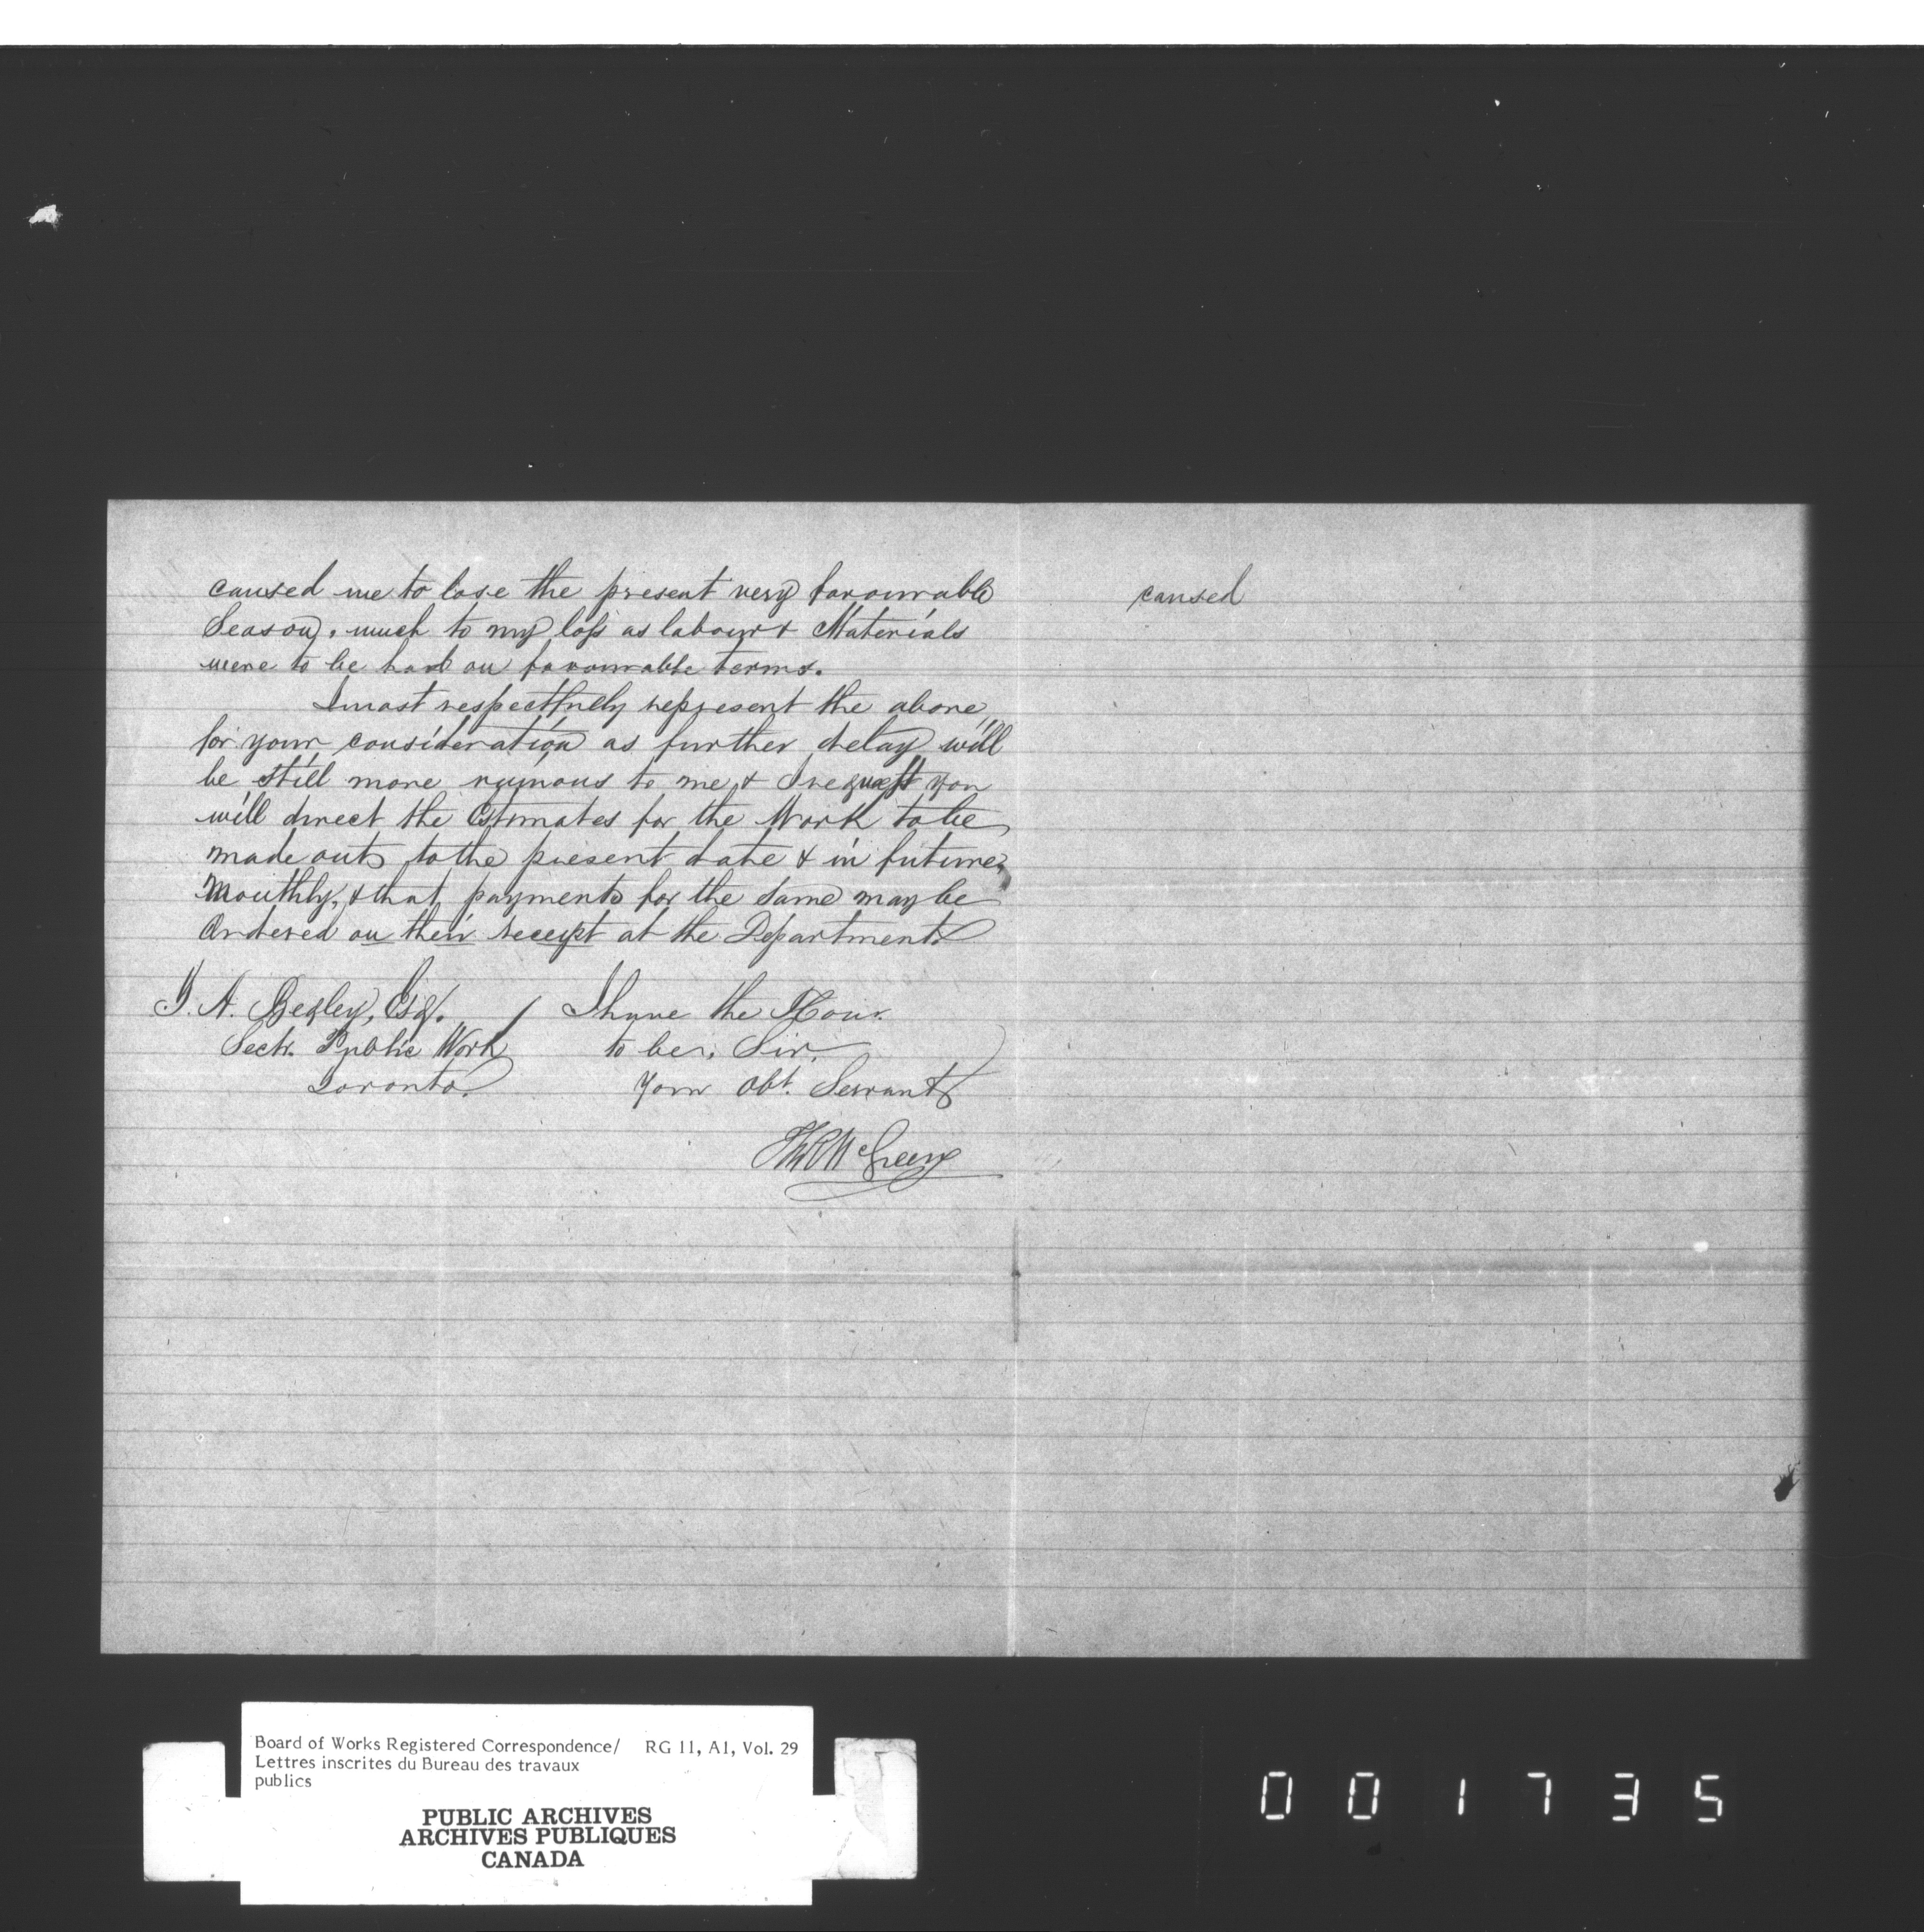 caused me to lose the present very favourable
Season, much to my loss as labour & Materials
were to be had on favourable terms.
I most respectfully represent the above,
for your consideration as further delay will
be still more ruinous to me & I request you
will direct the Estimates for the Work to be
made out to the present date & in future
Monthly, & that payments for the same may be
Ordered on their receipt at the Department.
T. A. Begley, Esq.
Sectr. Public Work
Toronto.
I have the Honr.
to be, Sir,
Your Obt. Servant
Thos McGreevy
caused
Board of Works Registered Correspondence/ RG 11, A1, Vol. 29
Lettres inscrites du Bureau des travaux
publics
PUBLIC ARCHIVES
ARCHIVES PUBLIQUES
CANADA
001735